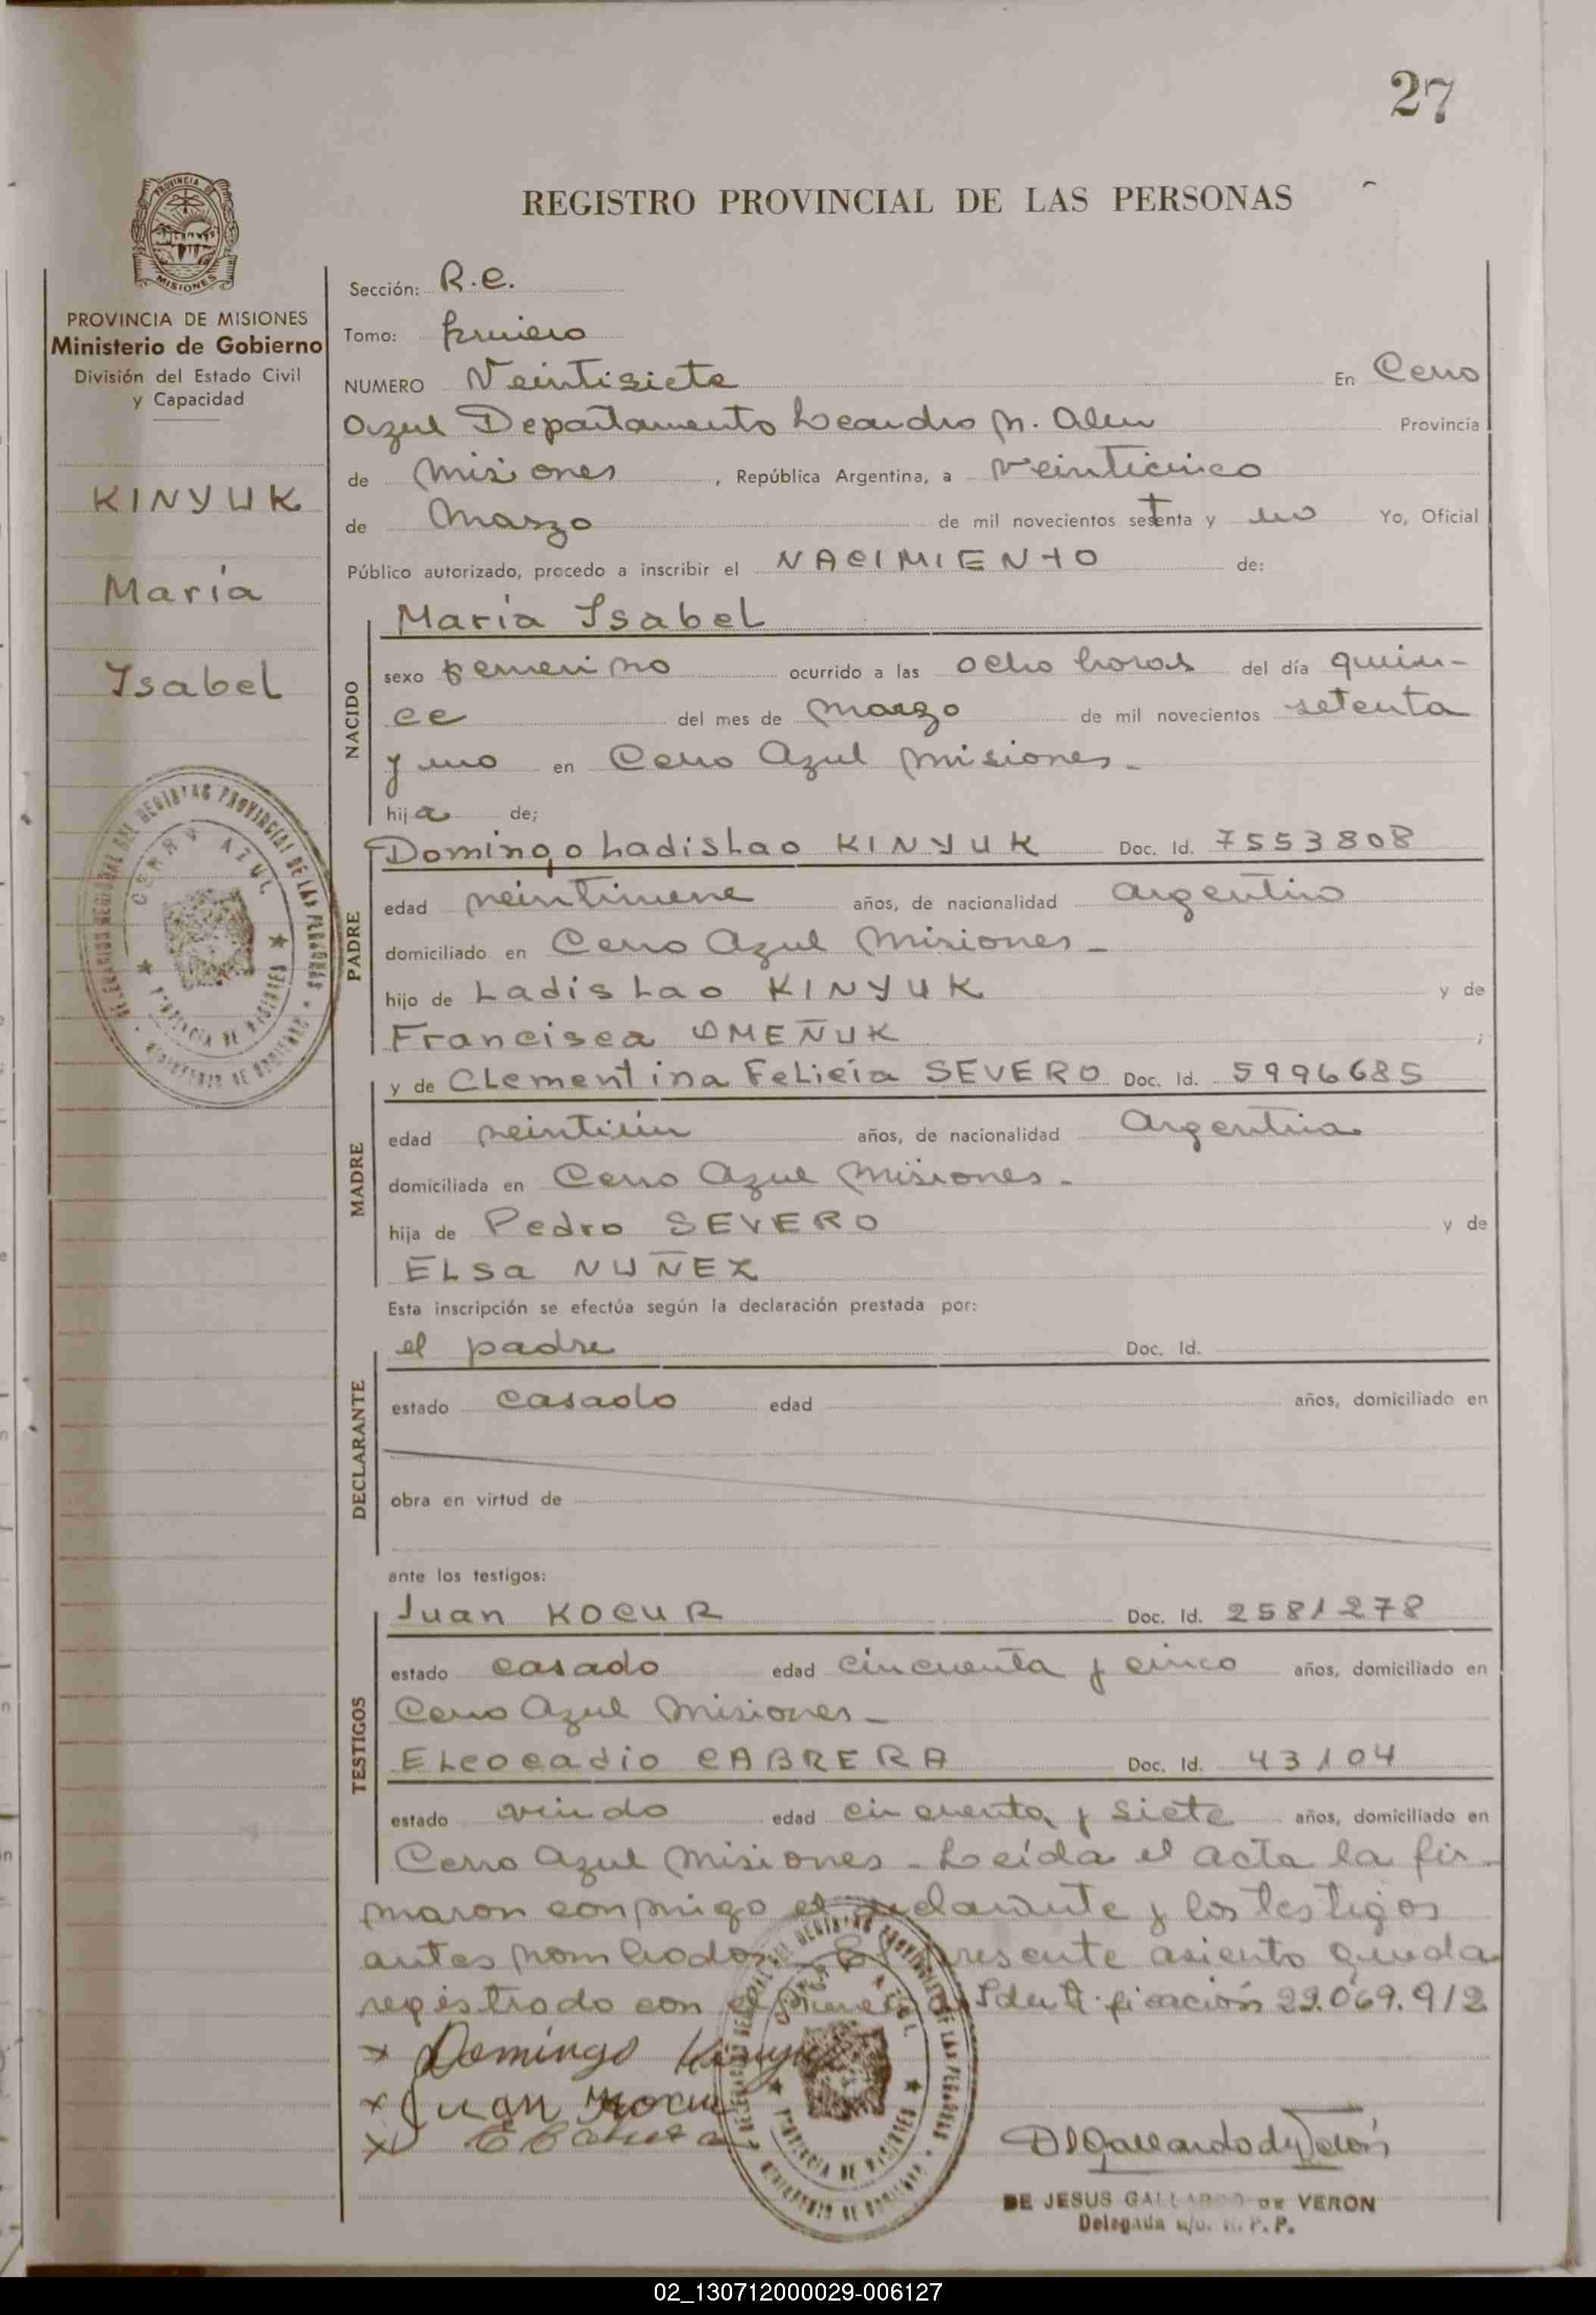 27
REGISTRO PROVINCIAL DE LAS PERSONAS
PROVINCIA DE MISIONES
PROVINCIA DE MISIONES
Ministerio de Gobierno
División del Estado Civil
y Capacidad
KINYUK
María
Isabel
Sección: R.C.
Tomo: primero
NUMERO Veintisiete En Cerro
Azul Departamento Leandro N. Alem Provincia
de Misiones , República Argentina, a veinticinco
de Marzo de mil novecientos setenta y uno Yo, Oficial
Público autorizado, procedo a inscribir el NACIMIENTO de:
NACIDO
María Isabel
sexo femenino ocurrido a las ocho horas del día quin-
ce del mes de marzo de mil novecientos setenta
y uno en Cerro Azul Misiones.-
hija de;
PADRE
Domingo Ladislao KINYUK Doc. Id. 7553808
edad veintinueve años, de nacionalidad argentino
domiciliado en Cerro Azul Misiones -
hijo de Ladislao KINYUK y de
Francisca OMEÑUK ;
MADRE
y de Clementina Felicia SEVERO Doc. Id. 5996685
edad veintiún años, de nacionalidad Argentina
domiciliada en Cerro Azul Misiones -
hija de Pedro SEVERO y de
ELSa NUÑEZ
Esta inscripción se efectúa según la declaración prestada por:
DECLARANTE
el padre Doc. Id.
estado casado edad años, domiciliado en
obra en virtud de
ante los testigos:
TESTIGOS
Juan KOCUR Doc. Id. 2581278
estado casado edad cincuenta y cinco años, domiciliado en
Cerro Azul Misiones -
ELeocadio CABRERA Doc. Id. 43104
estado viudo edad cincuenta y siete años, domiciliado en
Cerro Azul Misiones - Leída el acta la fir-
maron conmigo el declarante y los testigos
antes nombrados. El presente asiento queda
registrado con el número de Identificación 22.069.912
x Domingo Kinyuk
x Juan Kocur
x E Cabrera
DE JESUS GALLARDO DE VERON
Delegada R. P. P.
02_130712000029-006127